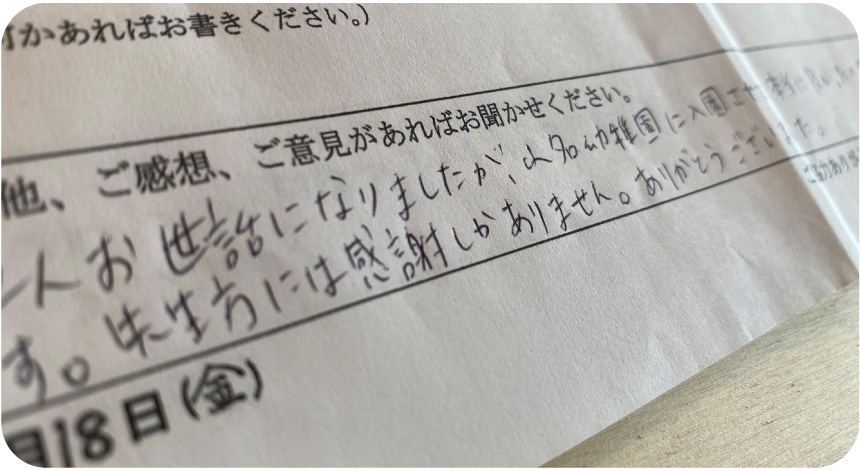 何かあればお書きください。)
他、ご感想、ご意見があればお聞かせください。
人お世話になりましたが、山名幼稚園に入園させ本当に良かった
す。先生方には感謝しかありません。ありがとうございました。
ご協力あり
月18日(金)